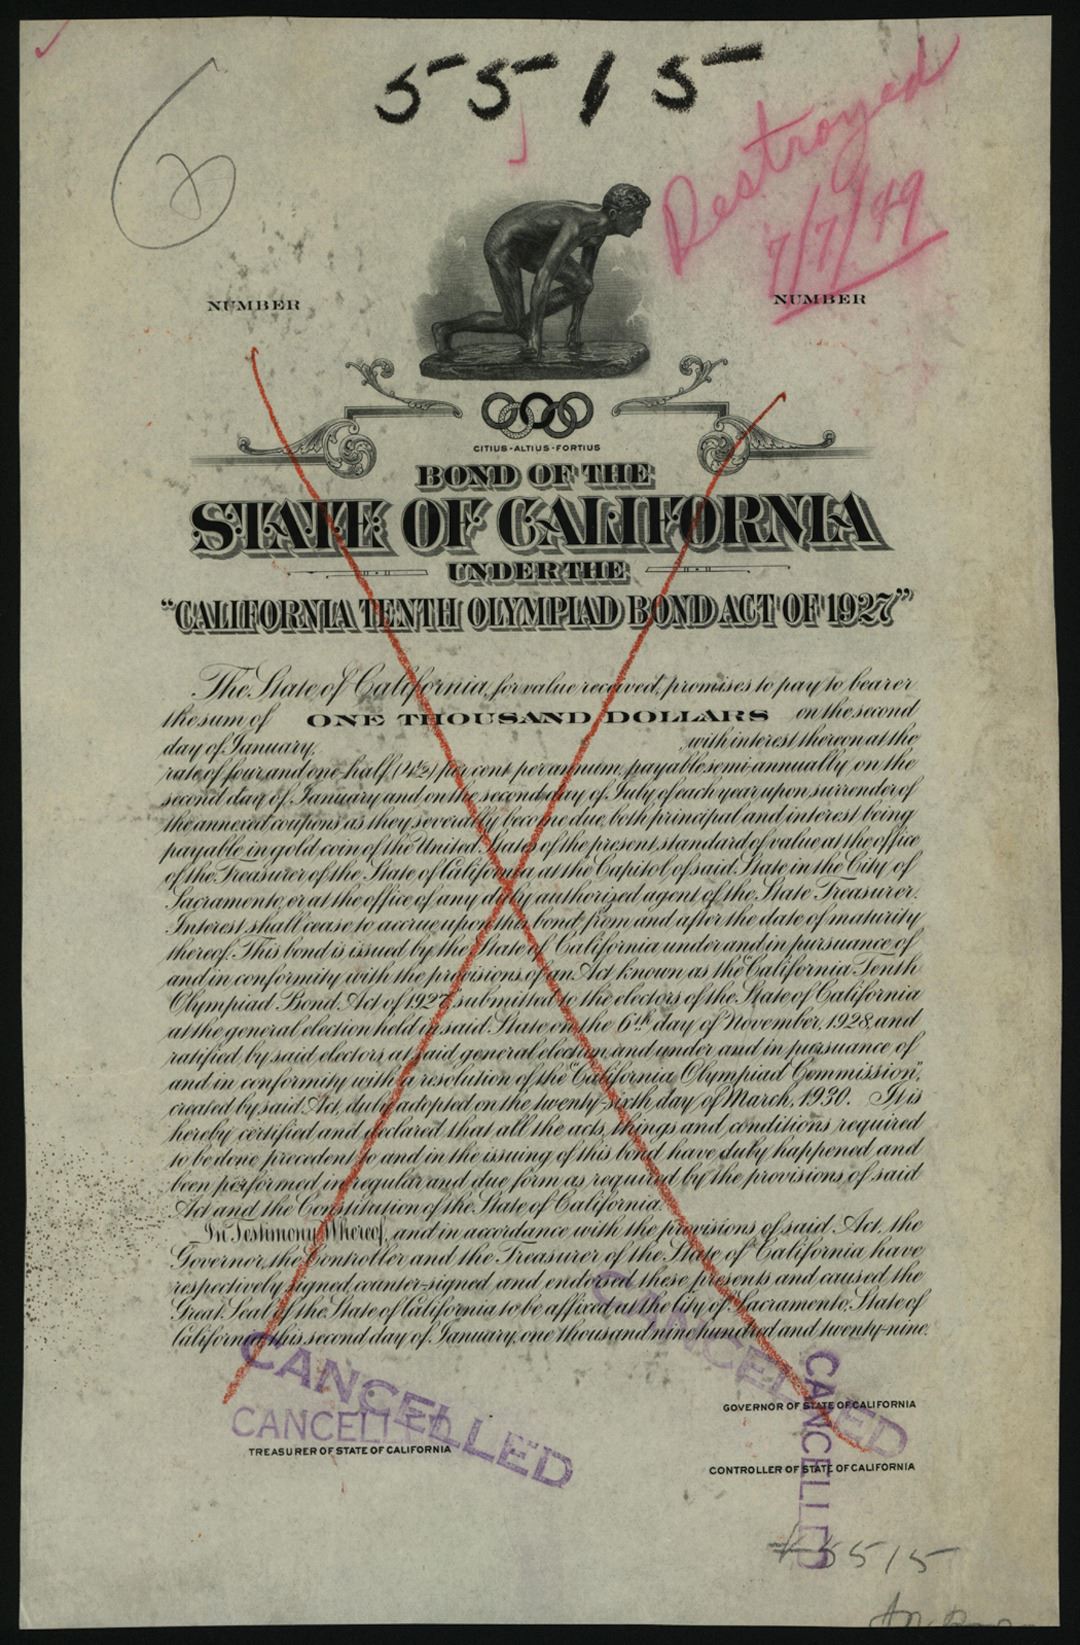 5515
Destroyed
7/7/49
NUMBER
NUMBER
CITIUS-ALTIUS-FORTIUS
BOND OF THE
STATE OF CALIFORNIA
UNDER THE
"CALIFORNIA TENTH OLYMPIAD BOND ACT OF 1927"
The State of California, for value received, promises to pay to bearer
the sum of ONE THOUSAND DOLLARS on the second
day of January, , with interest thereon at the
rate of four and one half (4½) per cent per annum, payable semi-annually on the
second day of January and on the second day of July of each year upon surrender of
the annexed coupons as they severally become due, both principal and interest being
payable in gold coin of the United States of the present standard of value at the office
of the Treasurer of the State of California at the Capitol of said State in the City of
Sacramento, or at the office of any duly authorized agent of the State Treasurer.
Interest shall cease to accrue upon this bond from and after the date of maturity
thereof. This bond is issued by the State of California under and in pursuance of
and in conformity with the provisions of an Act known as the "California Tenth
Olympiad Bond Act of 1927," submitted to the electors of the State of California
at the general election held in said State on the 6th day of November, 1928, and
ratified by said electors at said general election, and under and in pursuance of
and in conformity with a resolution of the "California Olympiad Commission",
created by said Act, duly adopted on the twenty-sixth day of March, 1930. It is
hereby certified and declared that all the acts, things and conditions required
to be done precedent to and in the issuing of this bond have duly happened and
been performed in regular and due form as required by the provisions of said
Act and the Constitution of the State of California.
In Testimony Whereof, and in accordance with the provisions of said Act, the
Governor, the Controller and the Treasurer of the State of California have
respectively signed, counter-signed and endorsed these presents and caused the
Great Seal of the State of California to be affixed at the City of Sacramento, State of
California, this second day of January, one thousand nine hundred and twenty-nine.
CANCELLED
CANCELLED
CANCELLED
CANCELLED
GOVERNOR OF STATE OF CALIFORNIA
TREASURER OF STATE OF CALIFORNIA
CONTROLLER OF STATE OF CALIFORNIA
#5515